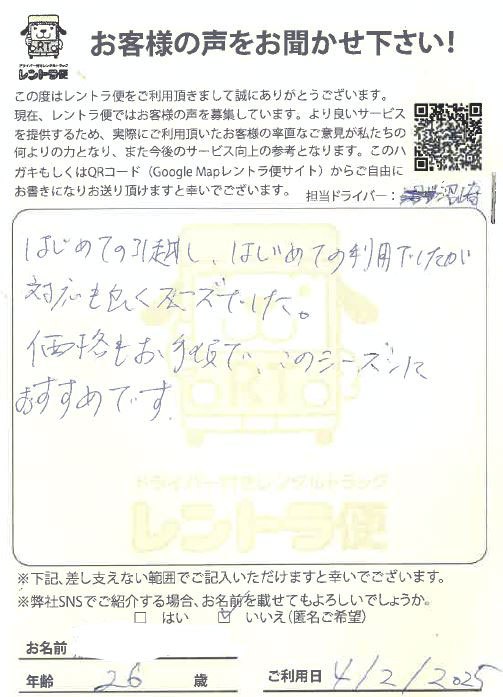 お客様の声をお聞かせ下さい!
ORTO
ドライバー付きレンタルトラック
レントラ便
この度はレントラ便をご利用頂きまして誠にありがとうございます。
現在、レントラ便ではお客様の声を募集しています。より良いサービス
を提供するため、実際にご利用頂いたお客様の率直なご意見が私たちの
何よりの力となり、また今後のサービス向上の参考となります。このハ
ガキもしくはQRコード(Google Mapレントラ便サイト)からご自由に
お書きになりお送り頂けますと幸いでございます。
担当ドライバー:沼崎
はじめての引越し、はじめての利用でしたが
対応も良くスムーズでした。
価格もお手頃で、このシーズンに
おすすめです。
ドライバー付きレンタルトラック
レントラ便
※下記、差し支えない範囲でご記入いただけますと幸いでございます。
※弊社SNSでご紹介する場合、お名前を載せてもよろしいでしょうか。
□ はい ☑ いいえ(匿名ご希望)
お名前
年齢 26 歳 ご利用日 4/2/2025